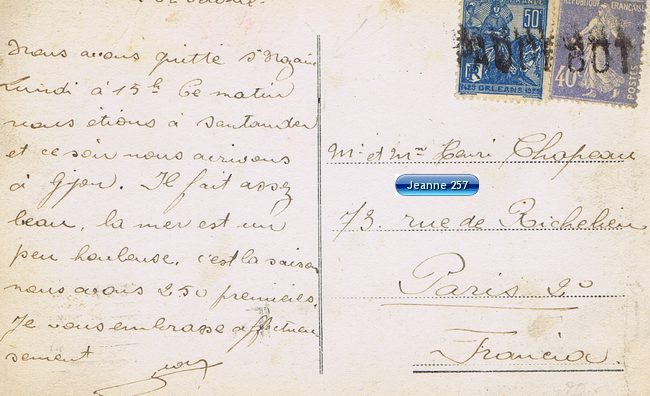 Nous avons quitté St Nazaire
Lundi à 15h Ce matin
nous étions à Santander
et ce soir nous arrivons
à Gijon. Il fait assez
beau, la mer est un
peu houleuse, c'est la saison
nous avons 250 premières.
Je vous embrasse affectueu
sement
50c
ORLEANS
REPUBLIQUE FRANÇAISE
POSTES
40c
Mr et Mme Henri Chapeau
Jeanne 257
73. rue de Richelieu
Paris 2o
Francia.